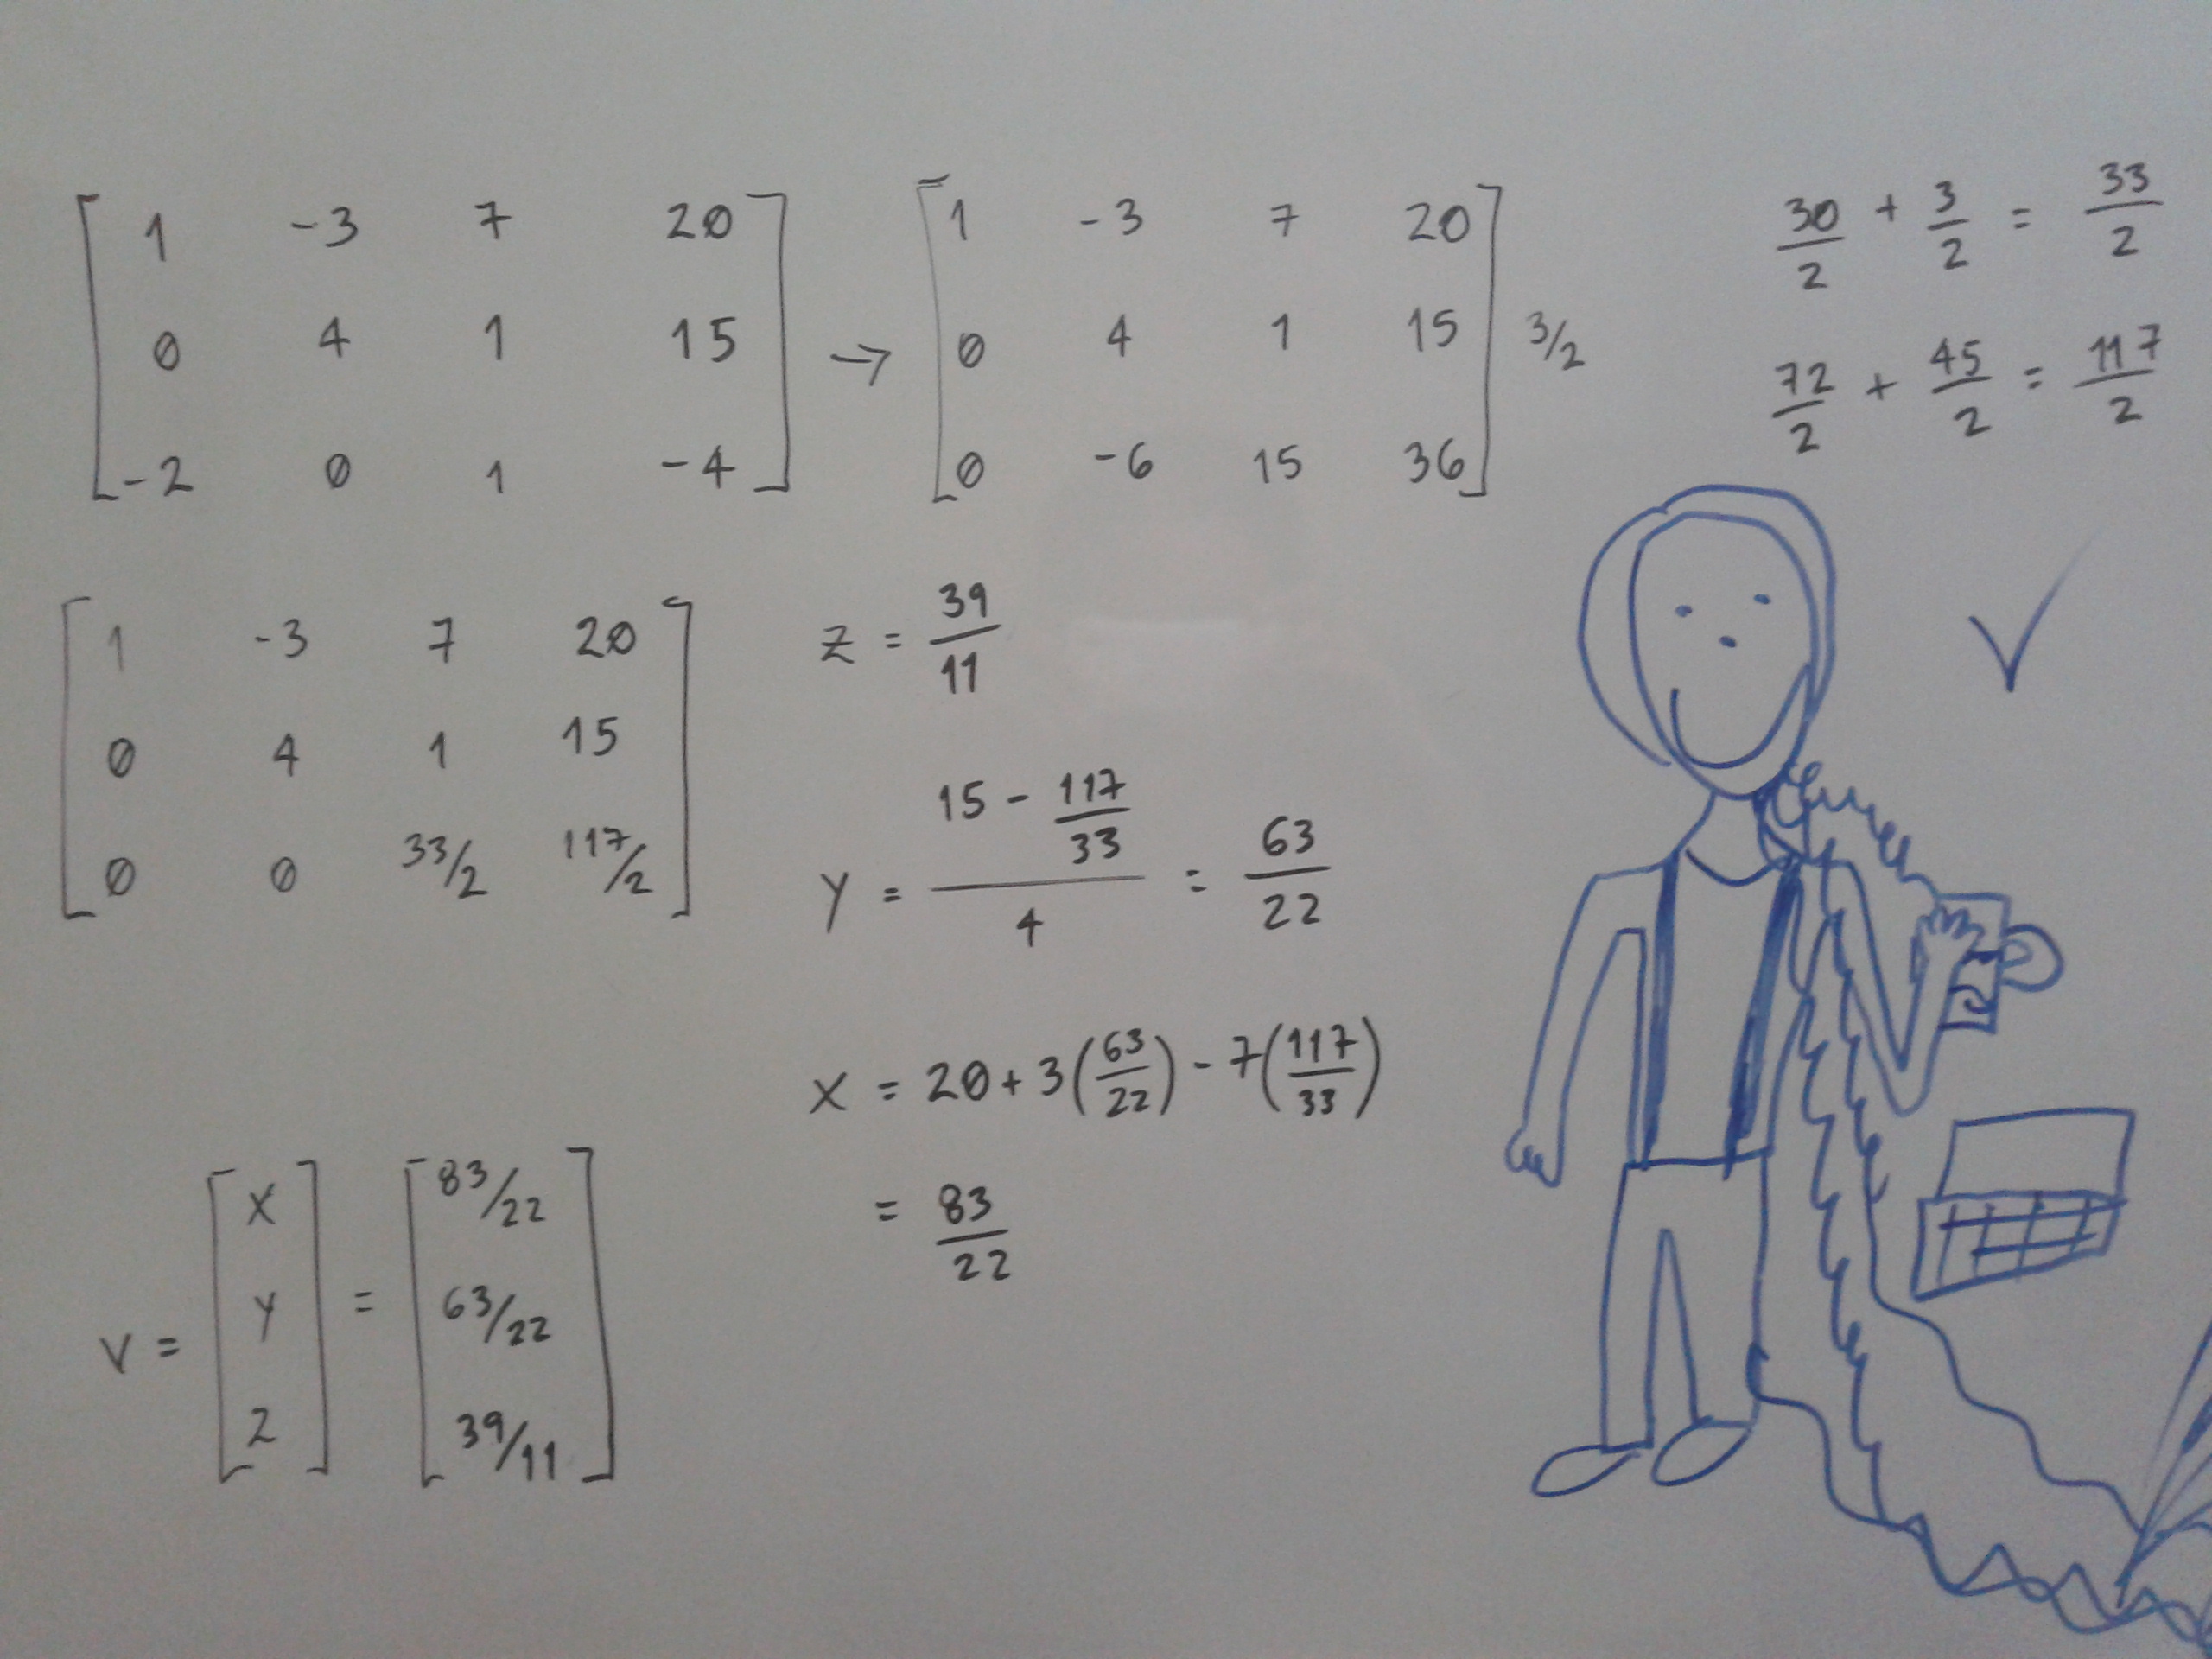 [ 1 -3 7 20 ] → [ 1 -3 7 20 ]
[ 0 4 1 15 ] [ 0 4 1 15 ] 3/2
[ -2 0 1 -4 ] [ 0 -6 15 36 ]
30/2 + 3/2 = 33/2
72/2 + 45/2 = 117/2
[ 1 -3 7 20 ]
[ 0 4 1 15 ]
[ 0 0 33/2 117/2 ]
z = 39/11
y = (15 - 117/33)/4 = 63/22
x = 20 + 3(63/22) - 7(117/33)
= 83/22
v = [ x y z ] = [ 83/22 63/22 39/11 ]